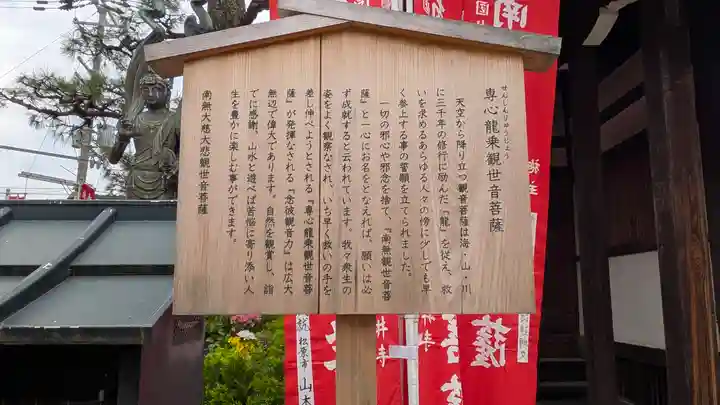 せんしんりゅうじょう
専心龍乗観世音菩薩
天空から降り立つ観音菩薩は海・山・川
に三千年の修行に励んだ『龍』を従え、救
いを求めるあらゆる人々の傍に少しでも早
く参上する事の誓願を立てられました。
一切の邪心や邪念を捨て、『南無観世音菩
薩』と一心にお名をとなえれば、願いは必
ず成就すると云われています。我々衆生の
姿をよく観察なされ、いち早く救いの手を
差し伸べようとされる『専心龍乗観世音菩
薩』が発揮なされる『念彼観音力』は広大
無辺で偉大であります。自然を観賞し、詣
でに感謝。山水と遊べば苦悩に寄り添い人
生を豊かに楽しむ事ができます。
南無大慈大悲観世音菩薩
南
薩
松原市
山本